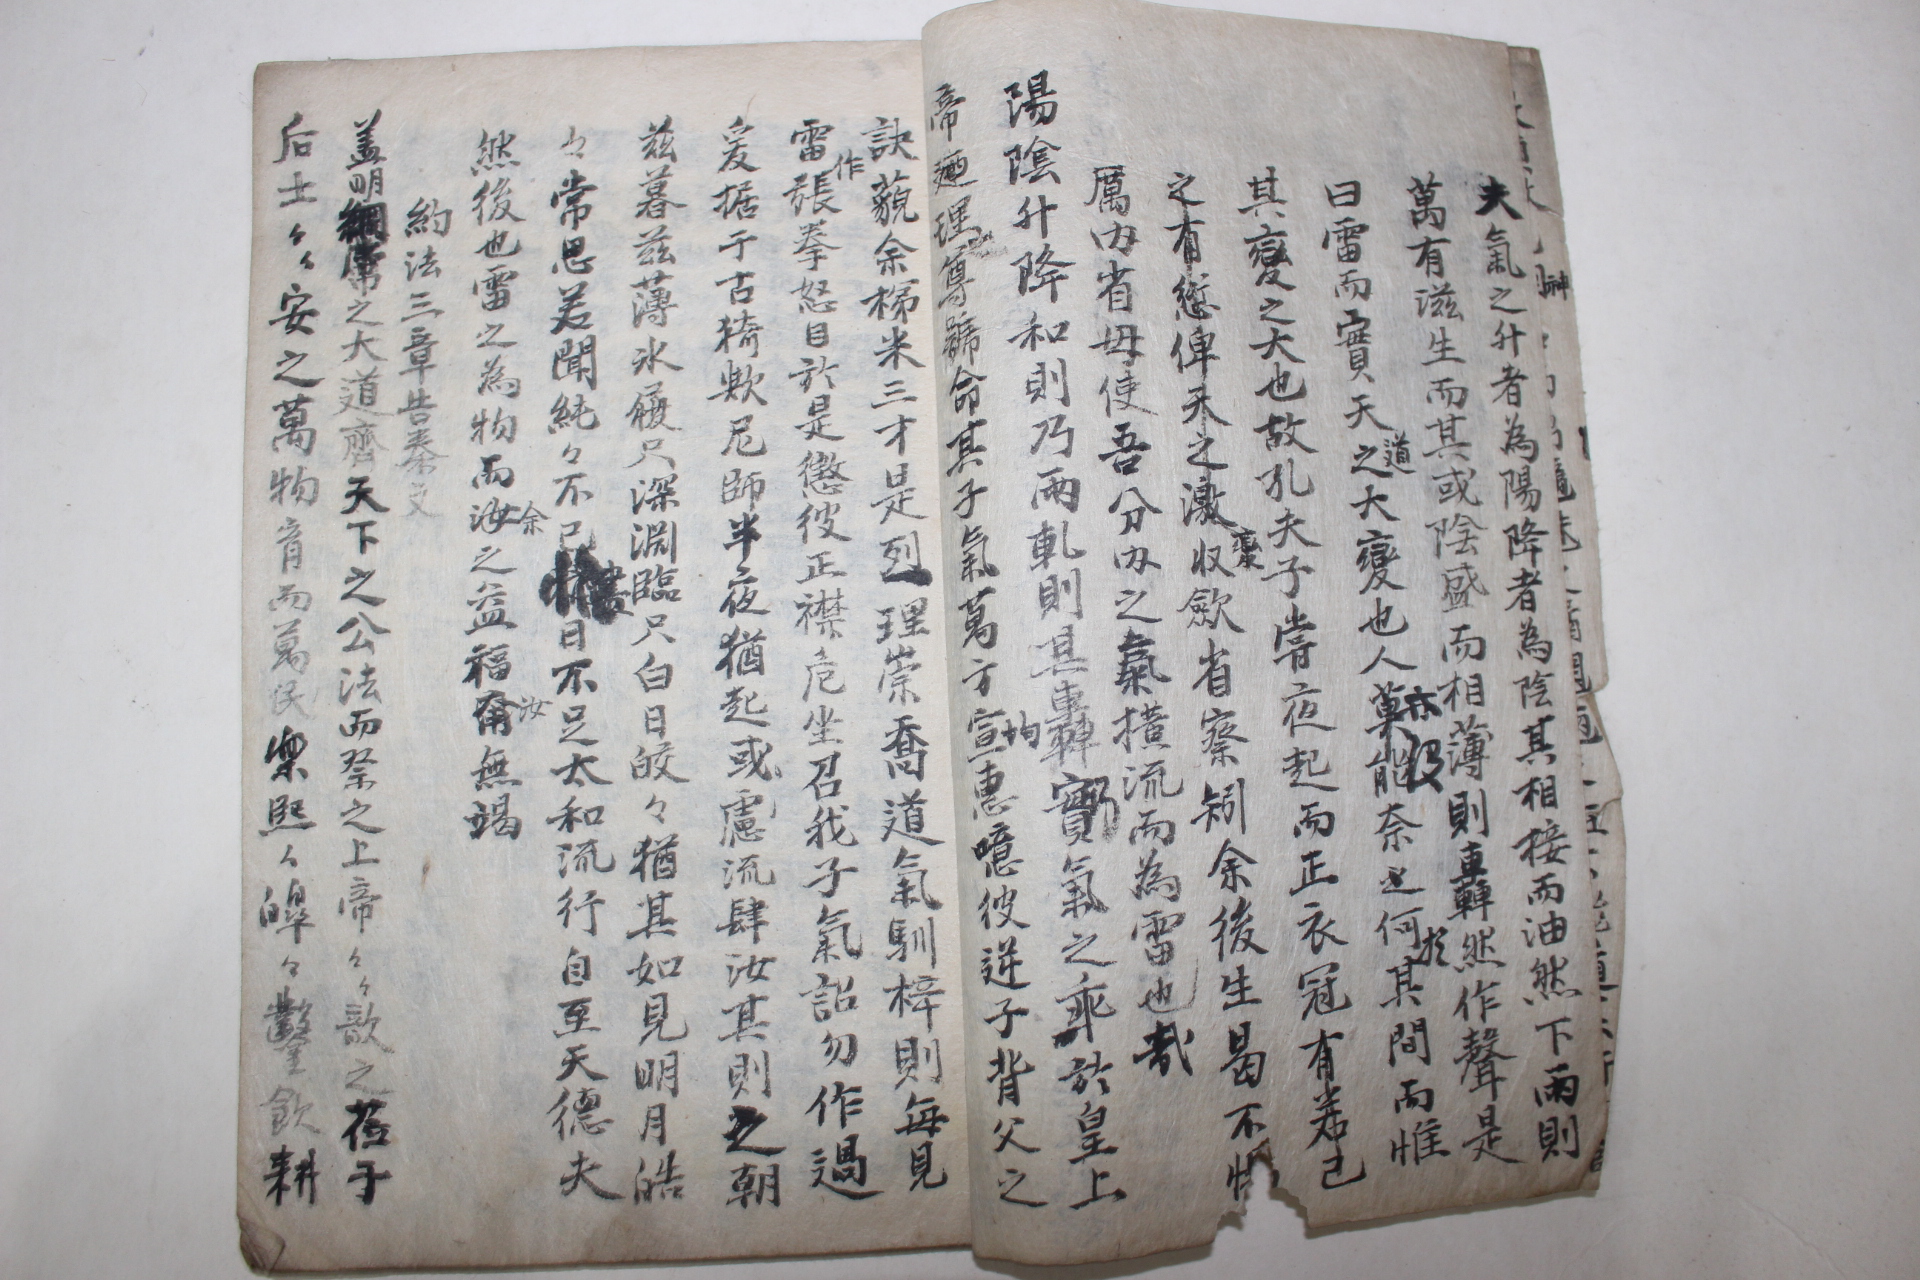 夫氣之升者為陽降者為陰其相接而油然下雨則
萬有滋生而其或陰盛而相薄則轟然作聲是
曰雷而實天之大變也人莫能奈之何其間而惟
道
亦
於
其變之大也故孔夫子嘗夜起而正衣冠有若己
之有愆俾天之激收歛省察矧余後生曷不惕
厲內省毋使吾分內之氣橫流而為雷也哉
陽陰升降和則乃雨軋則其轟實氣之乖於皇上
均
帝廼理尊號命其子氣萬方宣惠噫彼逆子背父之
訣藐余稊米三才是列理崇喬道氣馴梓則每見
雷張拳怒目於是懲彼正襟危坐召我子氣詔勿作過
作
爰据于古猗歟尼師半夜猶起或慮流肆汝其則之朝
兹暮兹薄氷履只深淵臨只白日皎々猶其如見明月皓
々常思若聞純々不已日不足太和流行自至天德夫
然後也雷之為物而汝之益福爾無竭
余
汝
約法三章告秦文
盖明綱常之大道齊天下之公法而祭之上帝々々歆之莅于
后土々々安之萬物育而萬民樂熙々皥々鑿飲耕